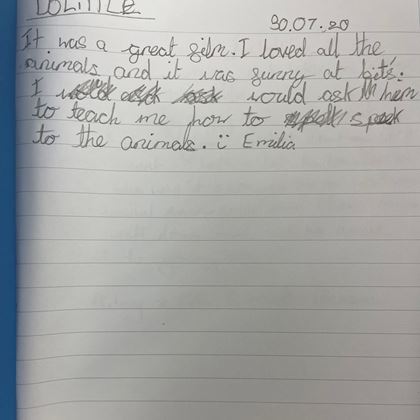 DOLITTLE
30.07.20
It was a great film. I loved all the
animals and it was funny at bits.
I would ask them
to teach me how to speak
to the animals. :) Emilia